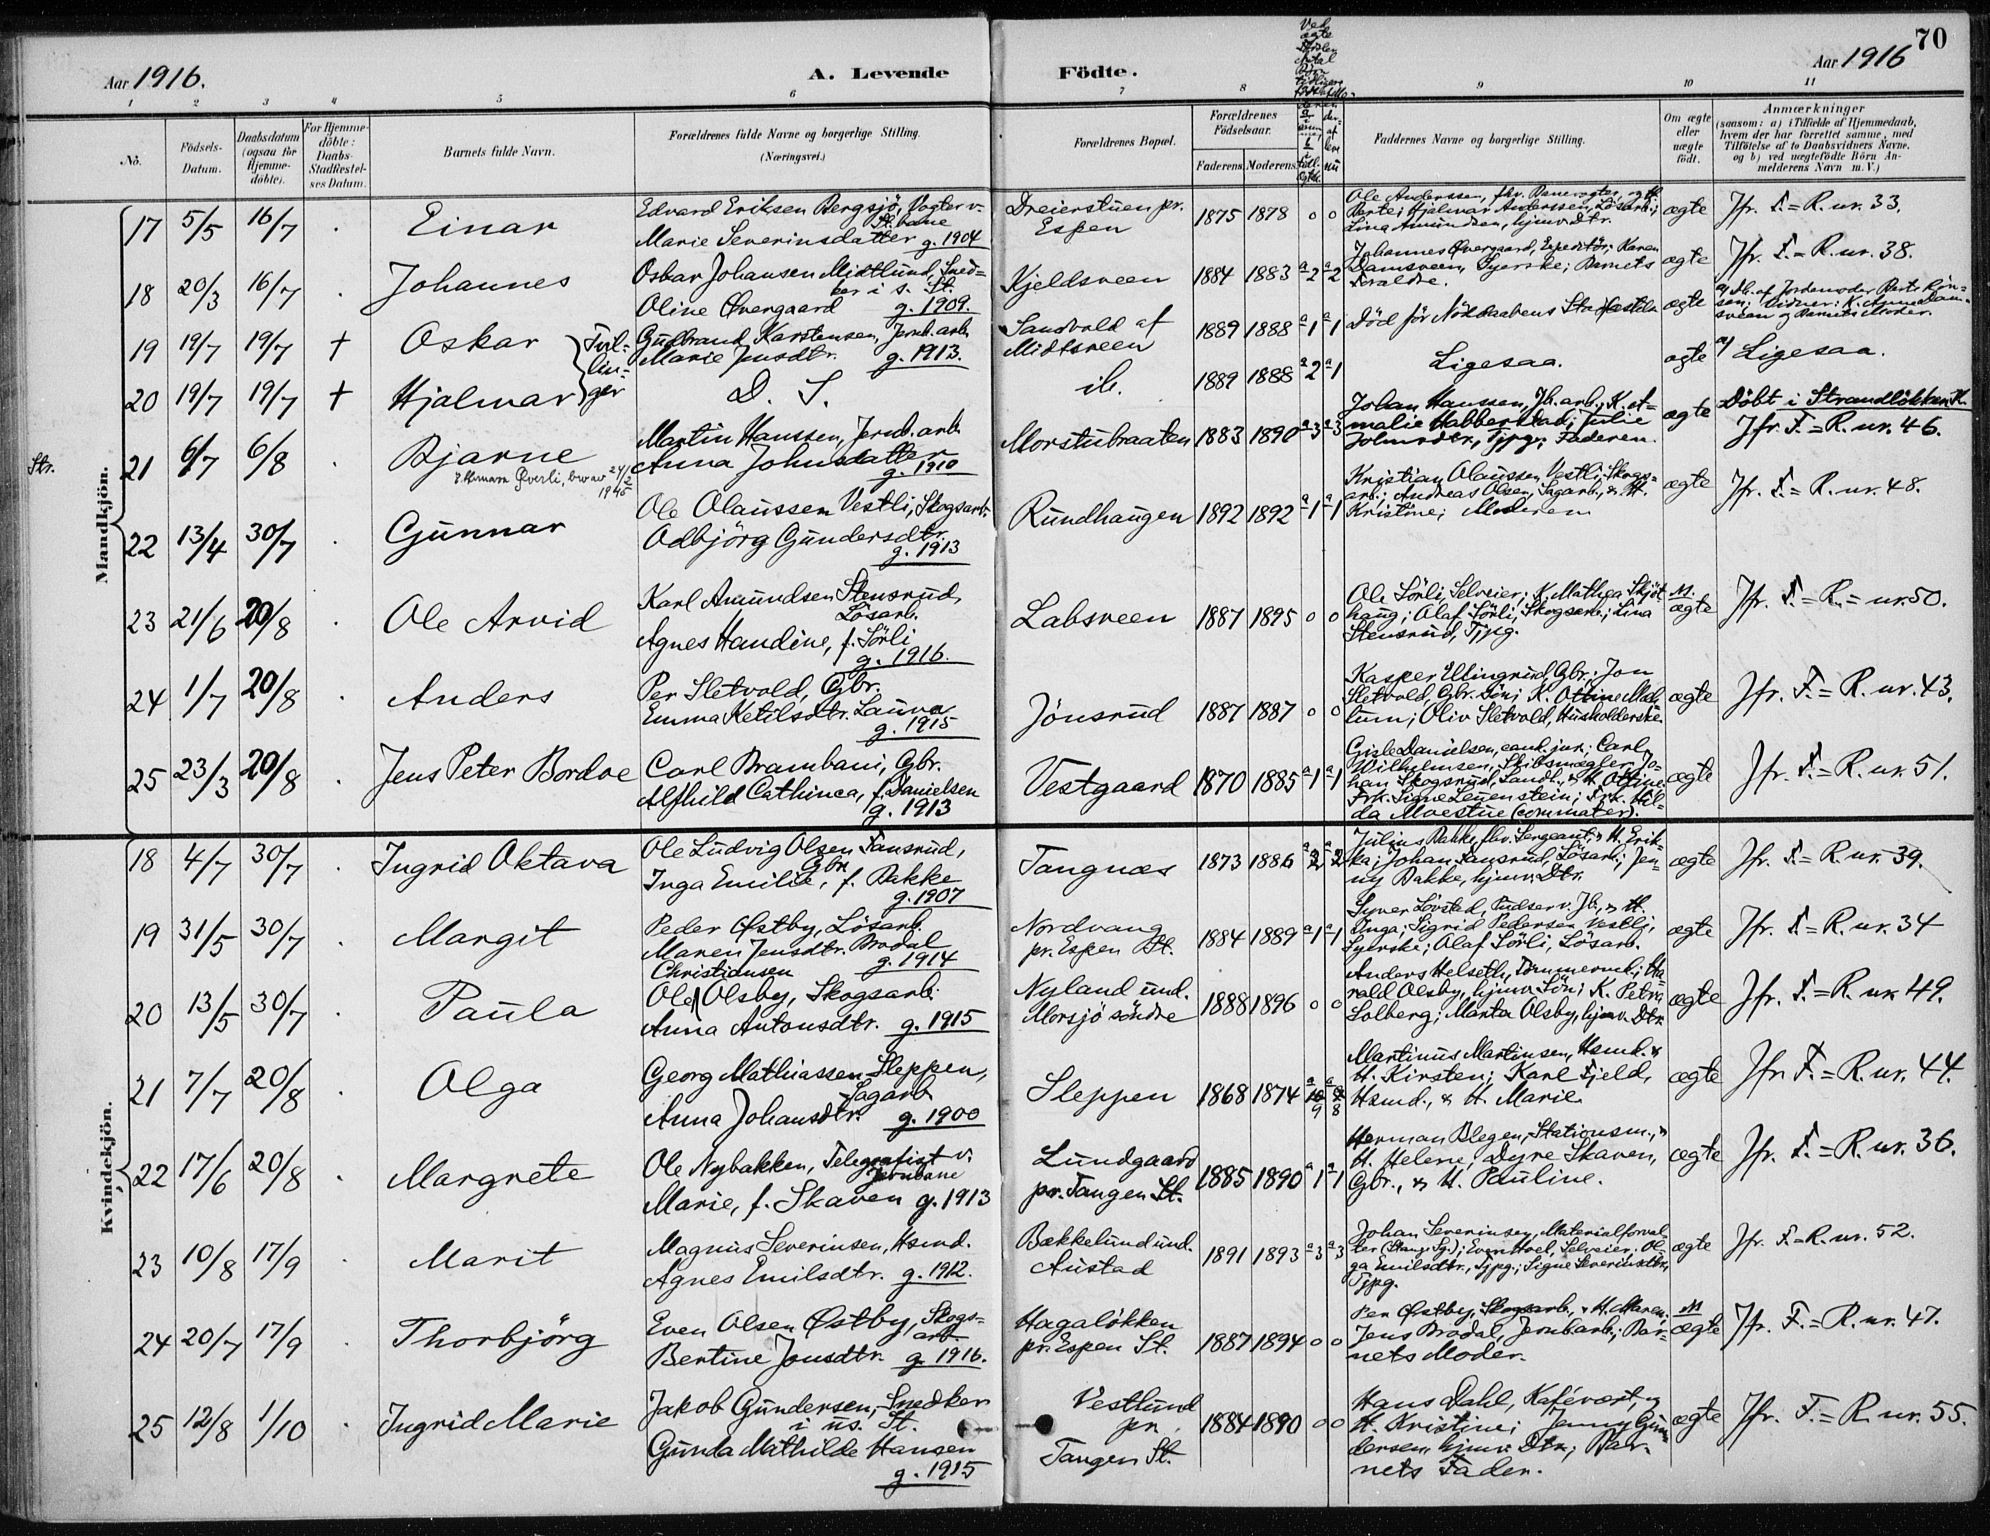 70
Aar 1916.
A. Levende
Födte.
Aar 1916
1 2 3 4 5 6 7 8 9 10 11
No. Födsels-Datum. Daabsdatum (ogsaa for Hjemme-döbte). For Hjemme-döbte: Daabs-Stadfæstel-ses Datum. Barnets fulde Navn. Forældrenes fulde Navne og borgerlige Stilling. (Næringsvei.) Forældrenes Bopæl. Forældrenes Födselsaar. Faderens. Moderens. Faddernes Navne og borgerlige Stilling. Om ægte eller uægte födt. Anmærkninger (saasom: a) i Tilfælde af Hjemmedaab, hvem der har forrettet samme, med Tilföielse af to Daabsvidners Navne, og b) ved uægtefödte Börn An-melderens Navn m. V.)
Mandkjön.
17 5/5 16/7 . Einar
Edvard Eriksen Bergsjö, Vogter v. St. bane
Marie Severinsdatter g. 1904
Dreierstuen pr. Espen 1875 1878 0 0
Lina Amundsen, hjemv. Dtr.
ægte Jfr. F.=R. nr. 33.
18 20/3 16/7 . Johannes
Oskar Johansen Midtlund, Sned-
ker i s. St.
Oline Övergaard g. 1909.
Kjeldsveen 1884 1883 a2 a2
Johannes Övergaard, Expeditör; Karen
Damsveen, Syerske; Barnets
Foraldre.
ægte Jfr. F.=R. nr. 38.
19 19/7 19/7 + Oskar } Tvil-
lin-
ger
Gudbrand Karstensen, Jernb.arb.
Marie Jensdtr. g. 1913.
Sandvold af Midtsveen 1889 1888 a1 a1
Död för Nöddaabens Stadfæstelse
ægte
20 19/7 19/7 + Hjalmar
D. S.
ib. 1889 1888 a2 a1
Ligesaa.
ægte a) Ligesaa.
Str. 21 6/7 6/8 . Bjarne
Martin Hanssen, Jernb. arb.
Anna Johnsdatter
g. 1910
Morstubraaten 1883 1890 a3 a3
Johan Hanssen, Jb. arb.; K. A-
malie Habberstad; Julie
Johnsdtr., Tjpg.; Faderen.
ægte Döbt i Strandlökken K.
Jfr. F.=R. nr. 46.
22 13/4 30/7 . Gunnar
Ole Olaussen Vestli, Skogsarb.
Odbjörg Gundersdtr.
g. 1913
Rundhaugen 1892 1892 a1 a1
Kristian Olaussen Vestli, Skogs-
arb.; Andreas Olsen, Sagarb., & H.
Kristine; Moderen
ægte Jfr. F.=R. nr. 48.
23 21/6 20/8 . Ole Arvid
Karl Amundsen Stensrud,
Lösarb.
Agnes Handine, f. Sörli
g. 1916.
Labsveen 1887 1895 0 0
Ole Sörli, Selveier; K. Mathea Skjöt-
haug; Olaf Sörli, Skogsarb.; Lina
Stensrud, Tjpg.
M. ægte Jfr. F.=R.=nr. 50.
24 1/7 20/8 . Anders
Per Sletvold, Gbr.
Emma Ketilsdtr. Laura
g. 1915
Jönsrud 1887 1887 0 0
Kasper Ellingsrud, Gbr.; Jon
Sletvold, Gbr. Sön; K. Ottine Mæh-
lum; Oliv Sletvold, Husholderske
ægte Jfr. F.=R. nr. 43.
25 23/3 20/8 . Jens Peter Bordoe
Carl Brambani, Gbr.
Alfhild Cathinca, f. Danielsen
g. 1913
Vestgaard 1870 1885 a1 a1
Gisle Danielsen, cand. jur.; Carl
Wilhelmsen, Skibsmægler; Jo-
han Skogsrud, Landh., & H. Ottine
Frk. Signe Leuenstein; Frk. Hil-
da Moestue (commater).
ægte Jfr. F.=R. nr. 51.
Kvindekjön.
18 4/7 30/7 . Ingrid Oktava
Ole Ludvig Olsen Tansrud,
Gbr.
Inga Emilie, f. Bakke
g. 1907
Tangnæs 1873 1886 a2 a2
Julius Bakke, fhv. Sergeant, & H. Erik-
ka; Johan Tansrud, Lösarb.; Jen-
ny Bakke, hjemv. Dtr.
ægte Jfr. F.=R. nr. 39.
19 31/5 30/7 . Margit
Peder Østby, Lösarb.
Maren Jensdtr. Bradal
g. 1914
Nordvang pr. Espen St. 1884 1889 a1 a1
Syver Lövstad, Pudser v. Jb., & H.
Inga; Sigrid Pedersen Vestli,
Syerske; Olaf Sörli, Lösarb.
ægte Jfr. F.=R. nr. 34
20 13/5 30/7 . Paula
Christiansen
Ole Olsby, Skogsarb.
Anna Antonsdtr. g. 1915
Nyland und. Morsjö söndre 1888 1896 0 0
Anders Helseth, Tömmermd.; Ha-
rald Olsby, hjemv. Sön; K. Petra
Solberg; Marta Olsby, hjemv. Dtr.
ægte Jfr. F.=R. nr. 49.
21 7/7 20/8 . Olga
Georg Mathiassen Sleppen,
Sagarb.
Anna Johansdtr. g. 1900
Sleppen 1868 1874 a10 9 8
Martinus Martinsen, Hsmd. &
H. Kirsten; Karl Fjeld,
Hsmd., & H. Marie
ægte Jfr. F.=R. nr. 44.
22 17/6 20/8 . Margrete
Ole Nybakken, Telegrafist v.
Jernbane
Marie, f. Skaven g. 1913
Lundgaard pr. Tangen St. 1885 1890 a1 a1
Herman Blegen, Stationsm., &
H. Helene; Dyre Skaven,
Gbr., & H. Pauline.
ægte Jfr. F.=R. nr. 36.
23 10/8 17/9 . Marit
Magnus Severinsen, Hsmd.
Agnes Emilsdtr. g. 1912.
Bækkelund und. Austad 1891 1893 a3 a3
Johan Severinsen, Materialforval-
ter (Stange Sg.); Even Hoel, Selveier; Ol-
ga Emilsdtr., Tjpg.; Signe Severinsdtr.,
Tjpg.
ægte Jfr. F.=R. nr. 52.
24 20/7 17/9 . Thorbjörg
Even Olsen Østby, Skogs-
arb.
Bertine Jensdtr. g. 1916.
Hagalökken pr. Espen St. 1887 1894 0 0
Per Østby, Skogsarb., & H. Maren;
Jens Bradal, Jernb.arb.; Bar-
nets Moder.
M ægte Jfr. F.=R. nr. 47.
25 12/8 1/10 . Ingrid Marie
Jakob Gundersen, Snedker
i us. St.
Gunda Mathilde Hansen
g. 1915
Vestlund pr. Tangen St. 1884 1890 0 0
Hans Dahl, Kafévært, og
H. Kristine; Jenny Gun-
dersen, hjemv. Dtr.; Bar-
nets Fader.
ægte Jfr. F.=R. nr. 55.